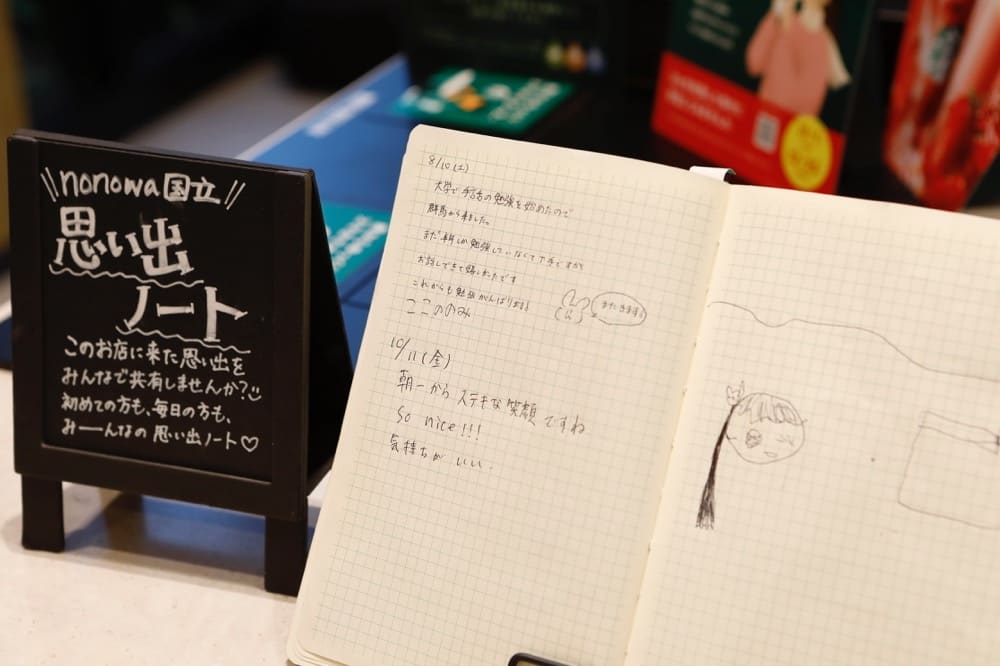 \\nonowa国立//
思い出
ノート
このお店に来た思い出を
みんなで共有しませんか?
初めての方も、毎日の方も、
みーんなの思い出ノート♡
8/10(土)
大学で手話の勉強を始めたので
群馬から来ました。
まだ単語しか勉強していなくて下手ですが
お話しできて嬉しかったです
これからも勉強がんばります!
ここののみ
また来ます!
10/11(金)
朝一からステキな笑顔ですね
so nice!!!
気持ちがいい.